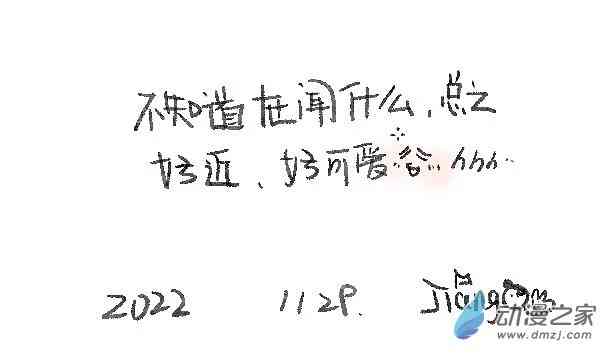 不知道在闻什么，总之
好近、好可爱
2022 1129.
动漫之家
www.dmzj.com